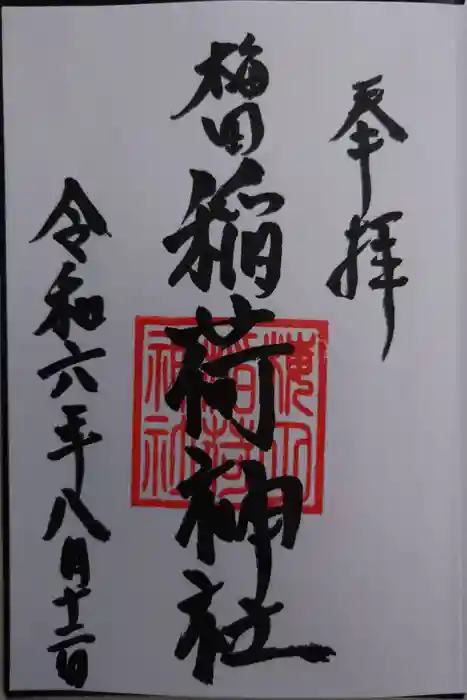 奉拝
梅田稲荷神社
令和六年八月十二日